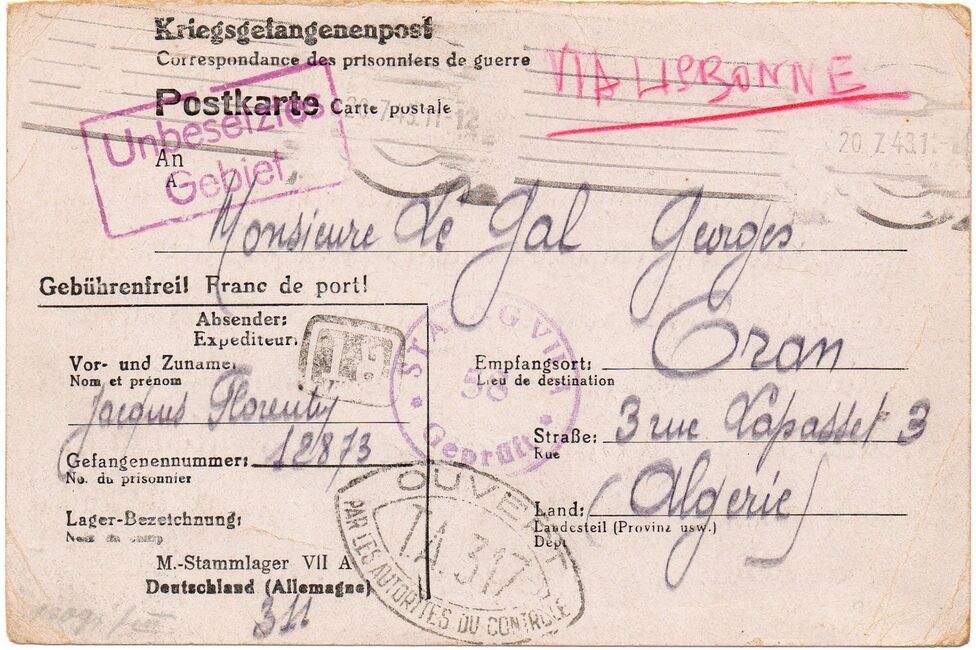 Kriegsgefangenenpost
Correspondance des prisonniers de guerre
VIA LISBONNE
Postkarte Carte postale
20.7.43.11
Unbesetztes
Gebiet
An
A
Monsieure Le Gal Georges
Gebührenfrei! Franc de port!
Absender:
Expediteur:
Vor- und Zuname:
Nom et prénom
Jacques
Gefangenennummer: 12873
No. du prisonnier
Lager-Bezeichnung:
Nom du camp
M.-Stammlager VII A
Deutschland (Allemagne)
311
STALAG VII A
58
Geprüft
Empfangsort: Oran
Lieu de destination
Straße: 3 rue Lapasset 3
Rue
Land: (Algerie)
Landesteil (Provinz usw.)
Dépt
OUVERT
T.A.317
PAR LES AUTORITÉS DU CONTROLE